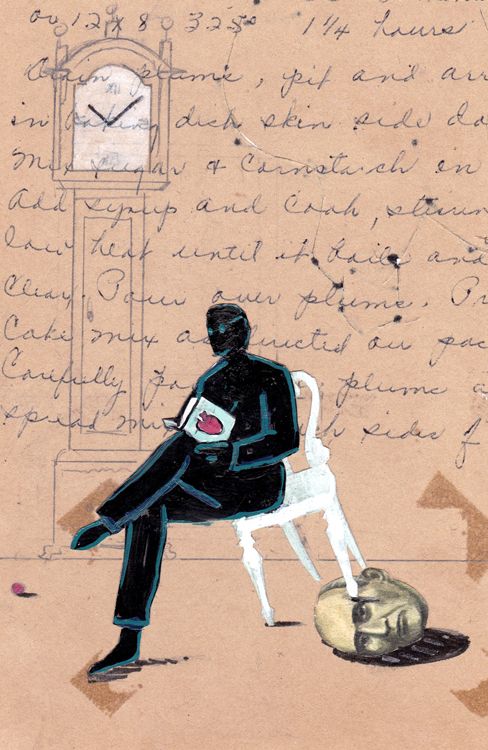 or 12 x 8 325° 1¼ hours
Drain plums, pit and arr
in baking dish skin side do
Mix sugar + Cornstarch in
Add syrup and Cook, stirrin
low heat until it boils and
Clear. Pour over plums. Pr
Cake mix as directed on pac
Carefully po plums a
spread mi ch sides of